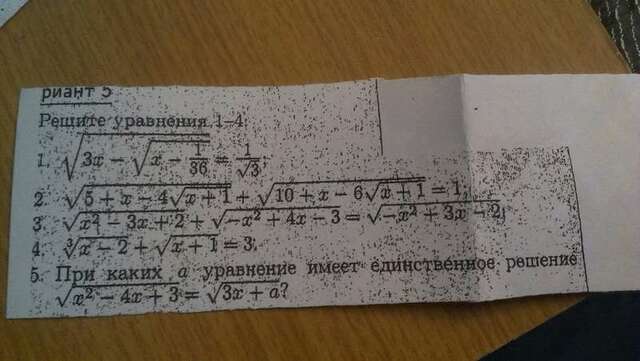 риант 5
Решите уравнения 1–4
1. √(3x − √(x − 1/36)) = 1/√3;
2. √(5 + x − 4√(x + 1)) + √(10 + x − 6√(x + 1)) = 1;
3. √(x² − 3x + 2) + √(−x² + 4x − 3) = √(−x² + 3x − 2);
4. ∛(x − 2) + √(x + 1) = 3;
5. При каких a уравнение имеет единственное решение
√(x² − 4x + 3) = √(3x + a)?